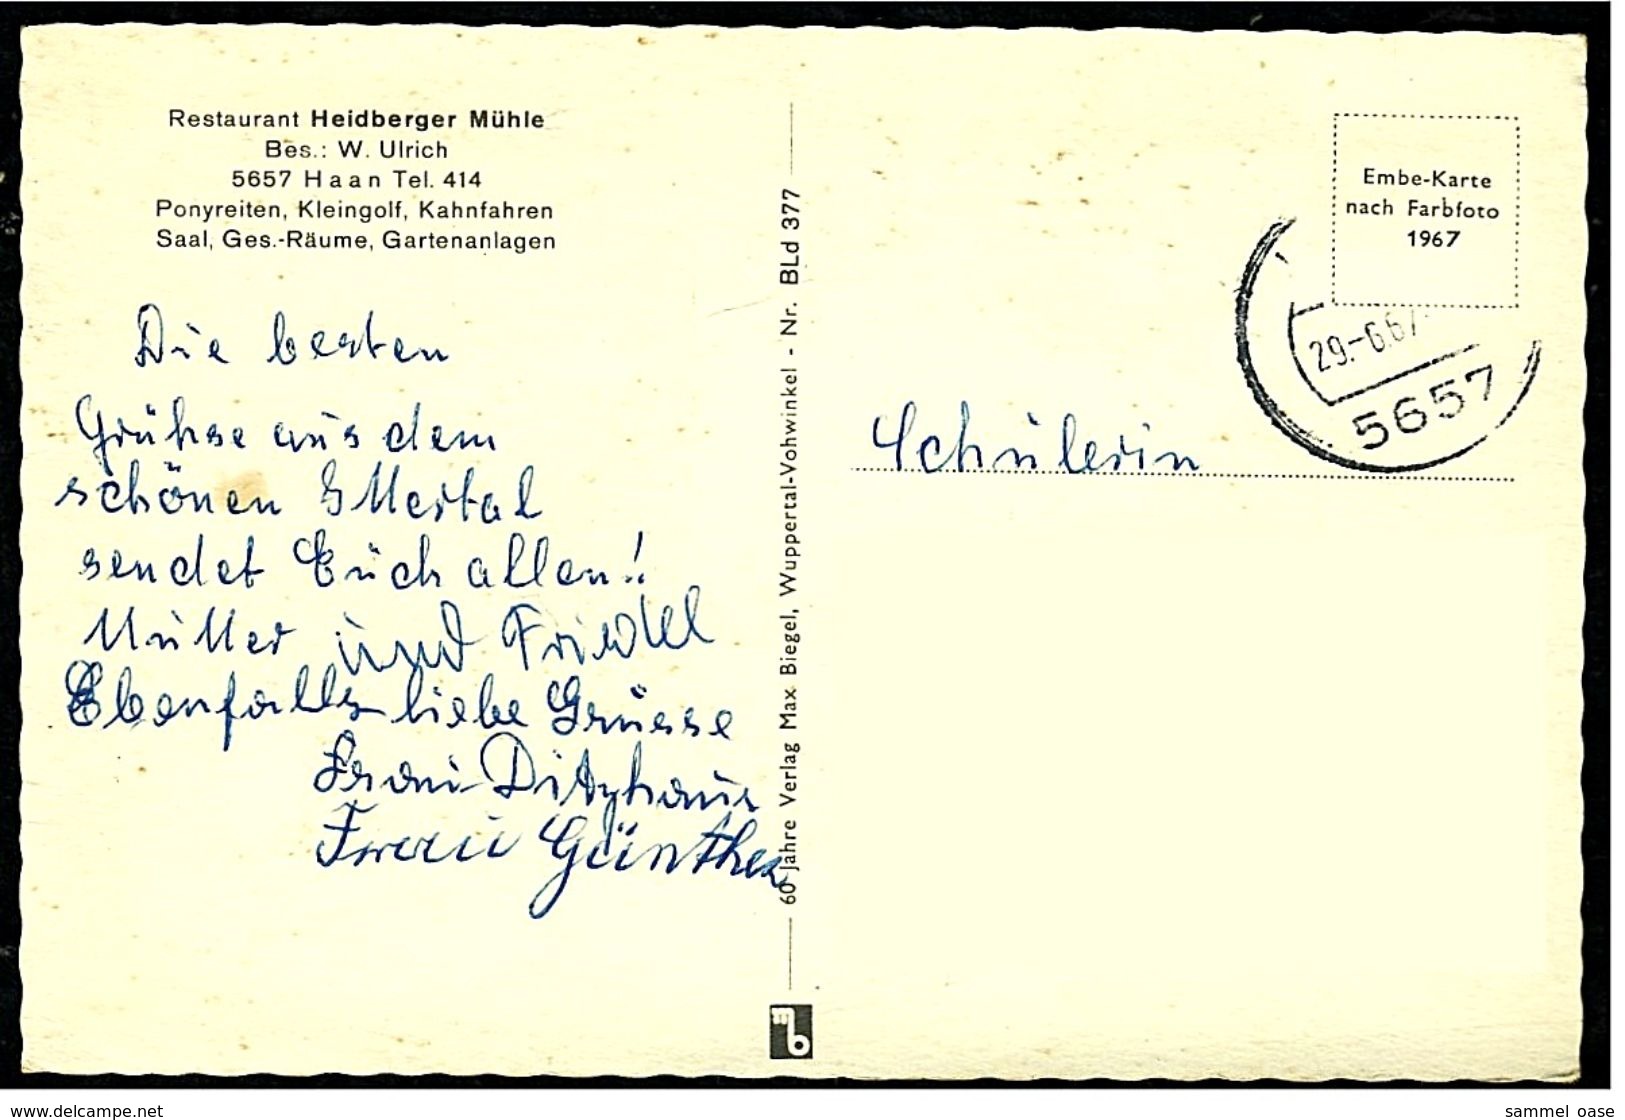 Restaurant Heidberger Mühle
Bes.: W. Ulrich
5657 Haan Tel. 414
Ponyreiten, Kleingolf, Kahnfahren
Saal, Ges.-Räume, Gartenanlagen
Die besten
Grühse aus dem
schönen Ittertal
sendet Euch allen!
Mutter und Friedel
Ebenfalls liebe Grüsse
Frau
Frau Günther
60 Jahre Verlag Max Biegel, Wuppertal-Vohwinkel - Nr. BLd 377
mb
Embe-Karte
nach Farbfoto
1967
29.-6.67
5657
Schülerin
www.delcampe.net
sammel_oase